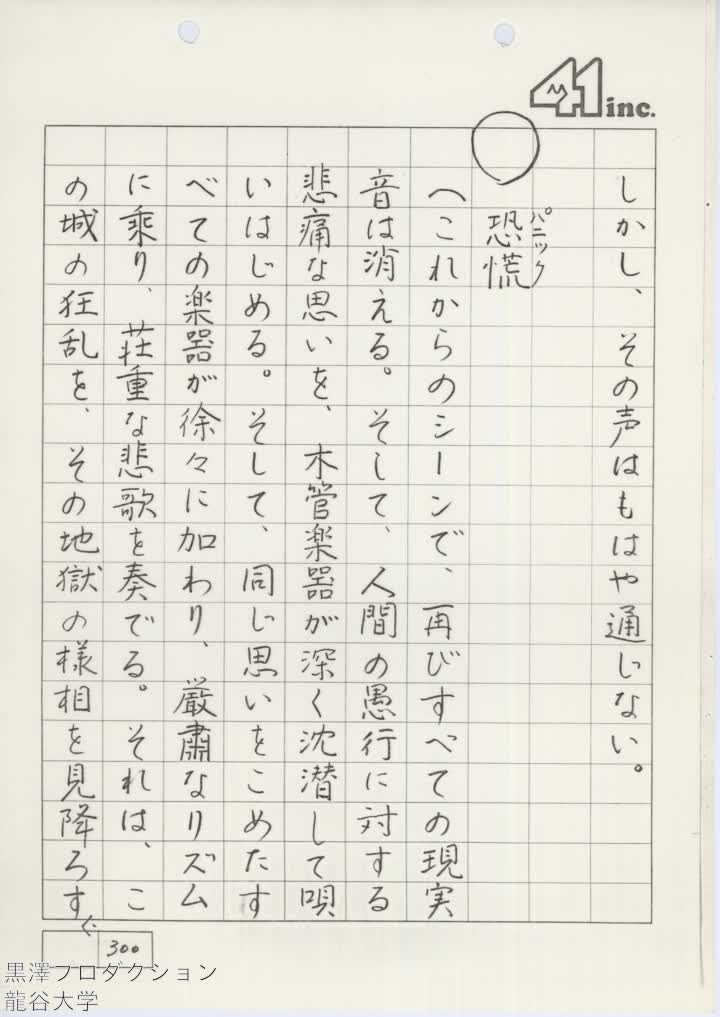 41 inc.
しかし、その声はもはや通じない。
恐慌
パニック
(これからのシーンで、再びすべての現実
音は消える。そして、人間の愚行に対する
悲痛な思いを、木管楽器が深く沈潜して唄
いはじめる。そして、同じ思いをこめたす
べての楽器が徐々に加わり、厳粛なリズム
に乗り、荘重な悲歌を奏でる。それは、こ
の城の狂乱を、その地獄の様相を見降ろす
300
黒澤プロダクション
龍谷大学